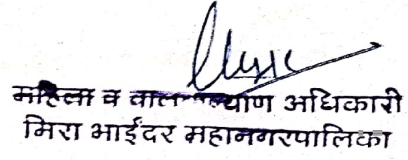 महिला व बाल कल्याण अधिकारी
मिरा भाईंदर महानगरपालिका